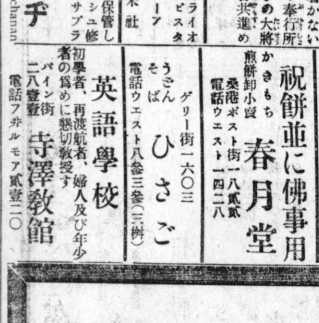 祝餅並に佛事用
かきもち
煎餅卸小賣
春月堂
桑港ポスト街一八貳貳
電話ウエスト一四二八
ゲリー街一六〇三
うどん
そば
ひさご
電話ウエスト八參三參(三樹)
英語學校
初學者、再渡航者、婦人及び年少
者の爲めに懇切敎授す
寺澤敎館
パイン街
二八壹壹
電話フヰルモア貳壹二〇